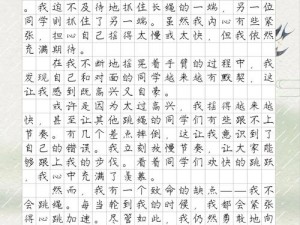 。我迫不及待地抓住长绳的一端，另一位
同学则抓住了另一端。虽然我内心有些紧
张，担心自己摇得太慢或太快，但我依然
充满期待。
在我不断地摇晃着手臂的过程中，我
发现自己和对面的同学越来越有默契，这
让我感到既高兴又自豪。
或许是因为太过高兴，我摇得越来越
快，甚至让其他跳绳的同学们有些跟不上
节奏。有几个差点摔倒，这让我意识到了
自己的错误。我立刻放慢节奏，让大家能
够跟上我的步伐。看着同学们欢快的跳跃
，我心中充满了羡慕。
然而，我有一个致命的缺点——我不
会跳绳。每当轮到我的时候，我都会紧张
得心跳加速。尽管如此，我仍然勇敢地向